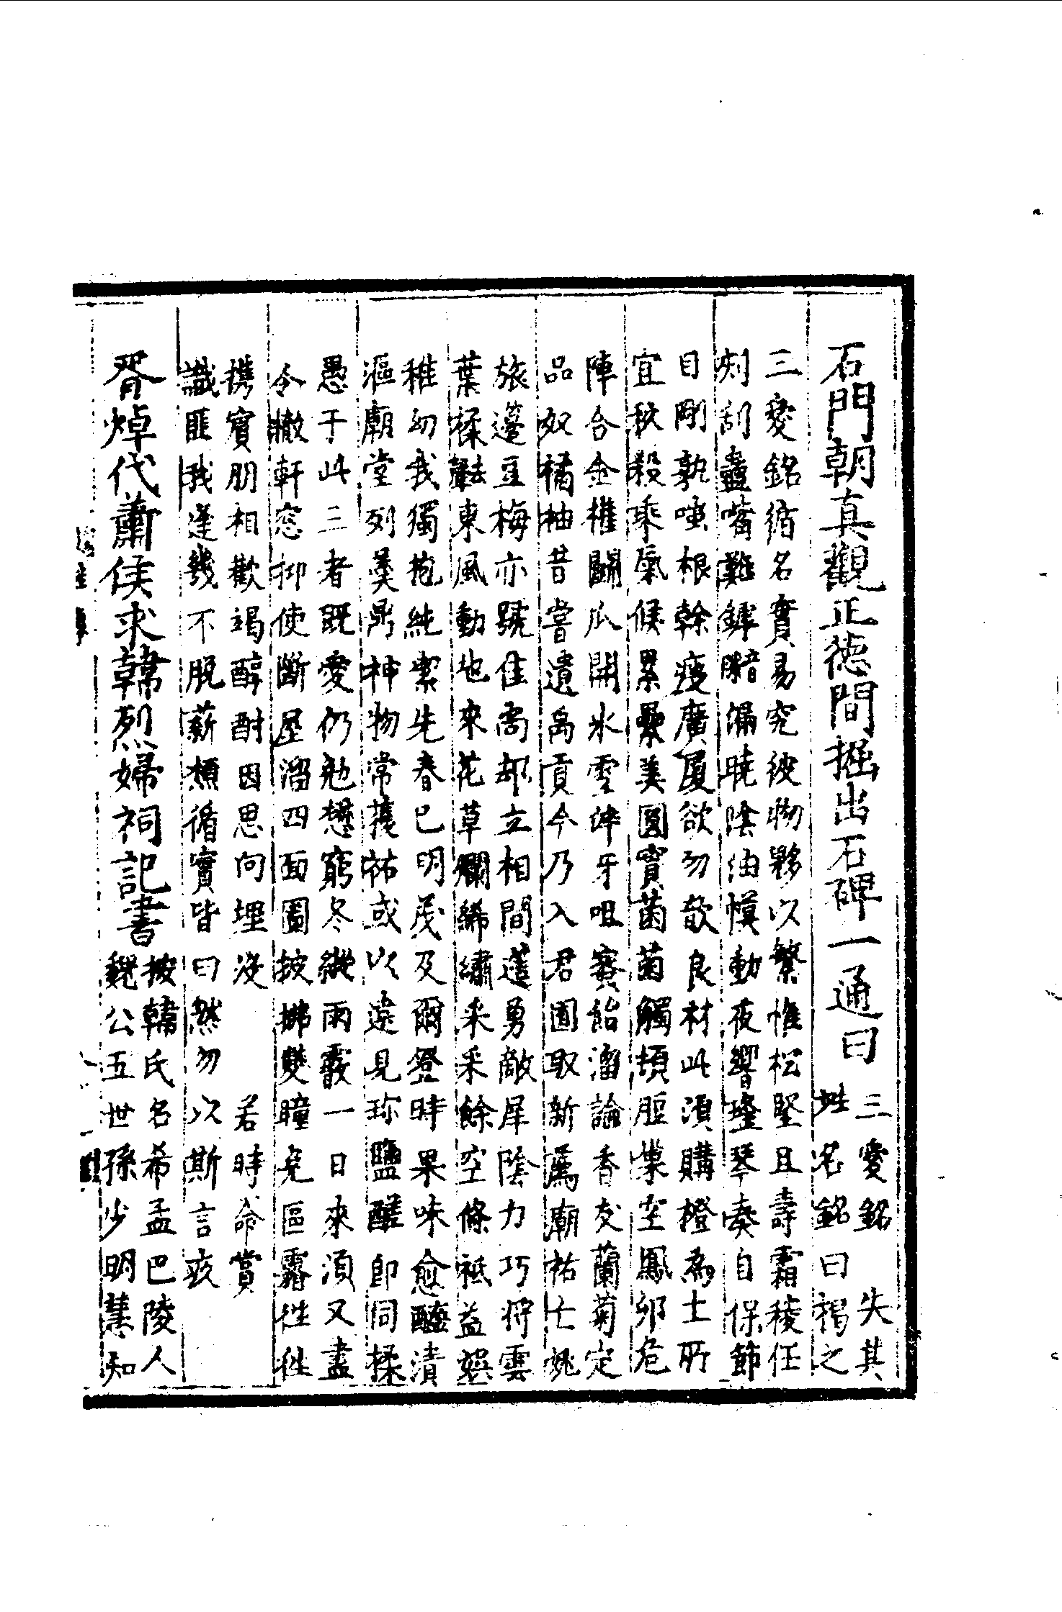 石門朝真觀正德間掘出石碑一通曰
三愛銘 失其
姓名銘曰褐之
三愛銘循名實易究彼物夥以繁惟松堅且壽霜稜任
刎刮蠧嘴難鏬黯漏曉陰油幙動夜響瑤琴奏自保節
目剛孰嗤根幹瘦廣厦欲勿欹良材此須購橙為士所
宜秋殺乘氣候累疊美圓實菌菌觸項脰業空鳳夘危
陣合金橙鬭瓜開氷雪併牙咀賽飴溜論香友蘭菊定
品奴橘柚昔嘗遺禹貢今乃入君囿取新薦廟祐亡姚
旅邊豆梅亦號佳喬却立相間蓬勇敵犀陰力巧將雲
葉揉東風動地來花草爛絺繡采采餘空條祗益娯
稚幼我獨抱純素先春已明茂及爾登時果味愈醶漬
漚廟堂列羮鼎神物常護祐或以逵見珎鹽醝即同揉
愚于此三者既愛仍勉懋窮冬縱雨霰一日來湏又盡
令撤軒窓抑使斷屋溜四面圖披挪雙瞳免區霿徃徃
携賓朋相歡竭醇酎因思向埋没 若時命賞
識匪我逢幾不脫薪槱循實皆曰然勿以斯言疚
胥焯代蕭侯求韓烈婦祠記書
按韓氏名希孟巴陵人
魏公五世孫少明慧知